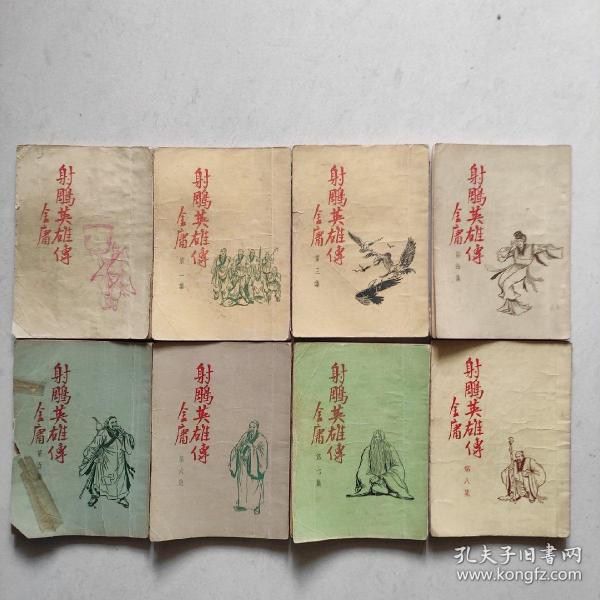 射鵰英雄傳
金庸
射鵰英雄傳
金庸
第一集
射鵰英雄傳
金庸
第三集
射鵰英雄傳
金庸
第四集
射鵰英雄傳
金庸
第五
射鵰英雄傳
金庸
第六集
射鵰英雄傳
金庸
第七集
射鵰英雄傳
金庸
第八集
孔夫子旧书网
www.kongfz.com